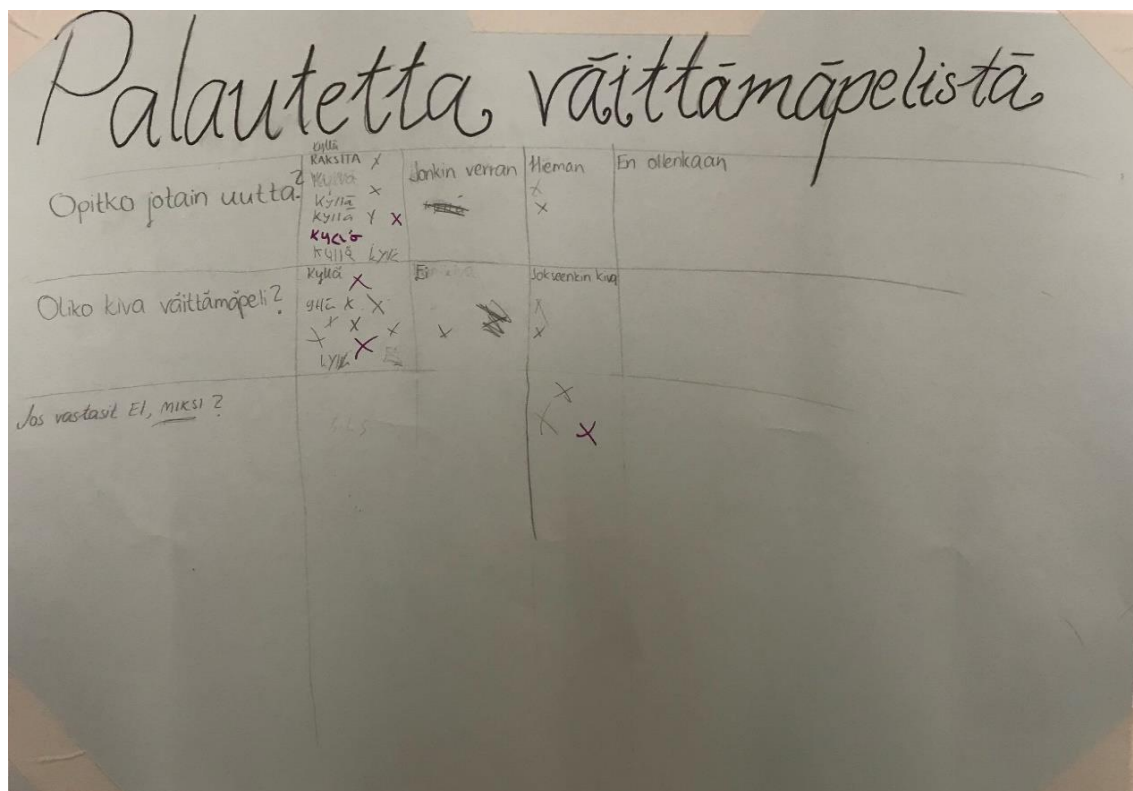 Palautetta väittämäpelistä
Opitko jotain uutta?
kyllä
RAKSITA X
X
Kyllä
Kyllä Y X
Kyllä LYK
Jonkin verran
Hieman
X
X
En ollenkaan
Oliko kiva väittämäpeli?
Kyllä X
X X
X X X
X X
LYK
Ei
X
Jokseenkin kiva
X
Jos vastasit EI, MIKSI?
X
X X